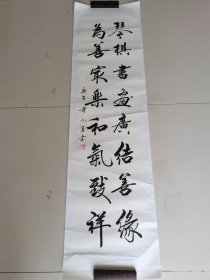 琴棋書畫廣結善緣
為善家樂和氣致祥